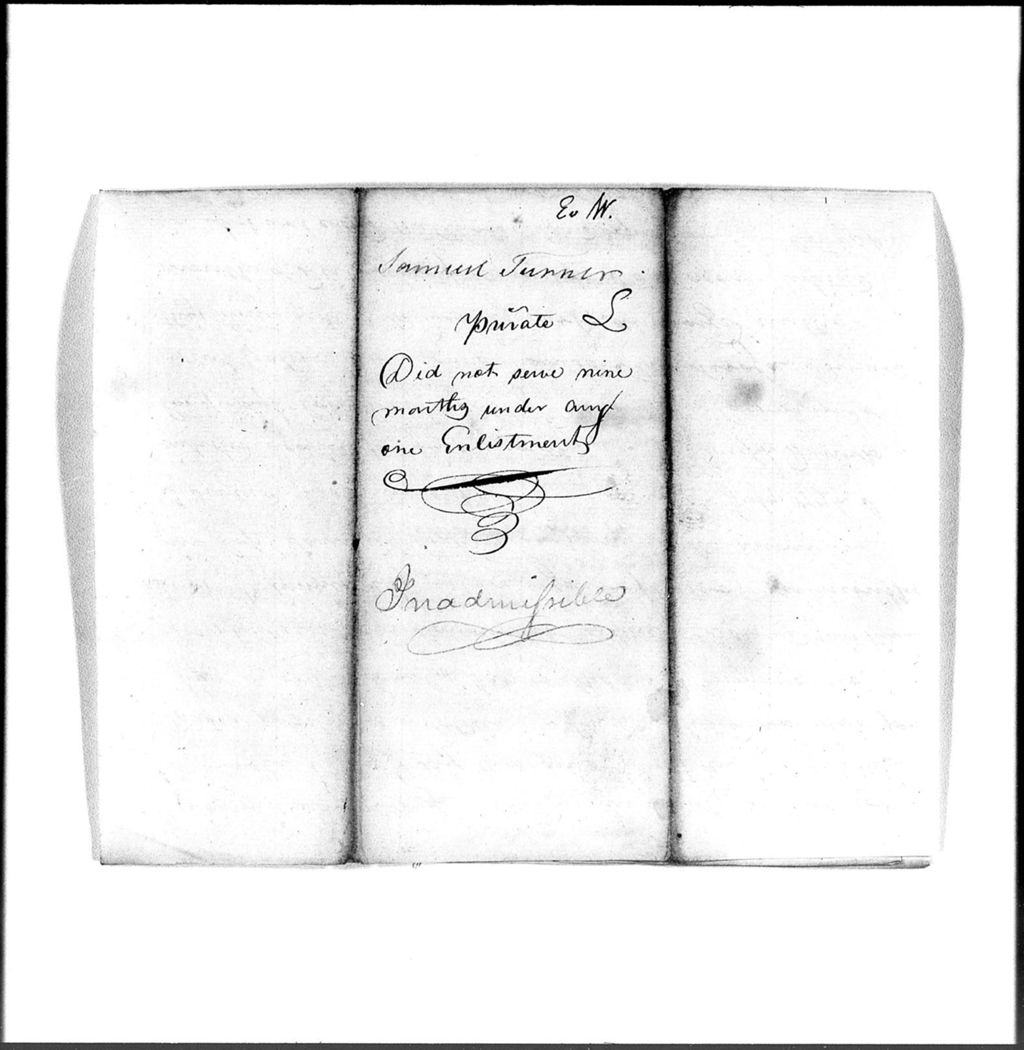 Ev W.
Samuel Turner
private L
Did not serve nine
months under any
one Enlistment
Inadmissible